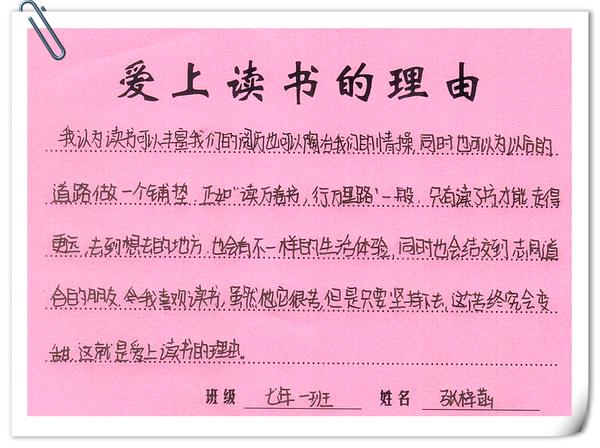 爱上读书的理由
我认为读书可以丰富我们的阅历也可以陶冶我们的情操,同时也可以为以后的
道路做一个铺垫.正如“读万卷书,行万里路”一般.只有读了书才能走得
更远,去到想去的地方.也会有不一样的生活体验,同时也会结交到志同道
合的朋友.令我喜欢读书,虽然他它很苦,但是只要坚持下去,这苦终究会变
甜,这就是爱上读书的理由.
班级 七年一班 姓名 张梓